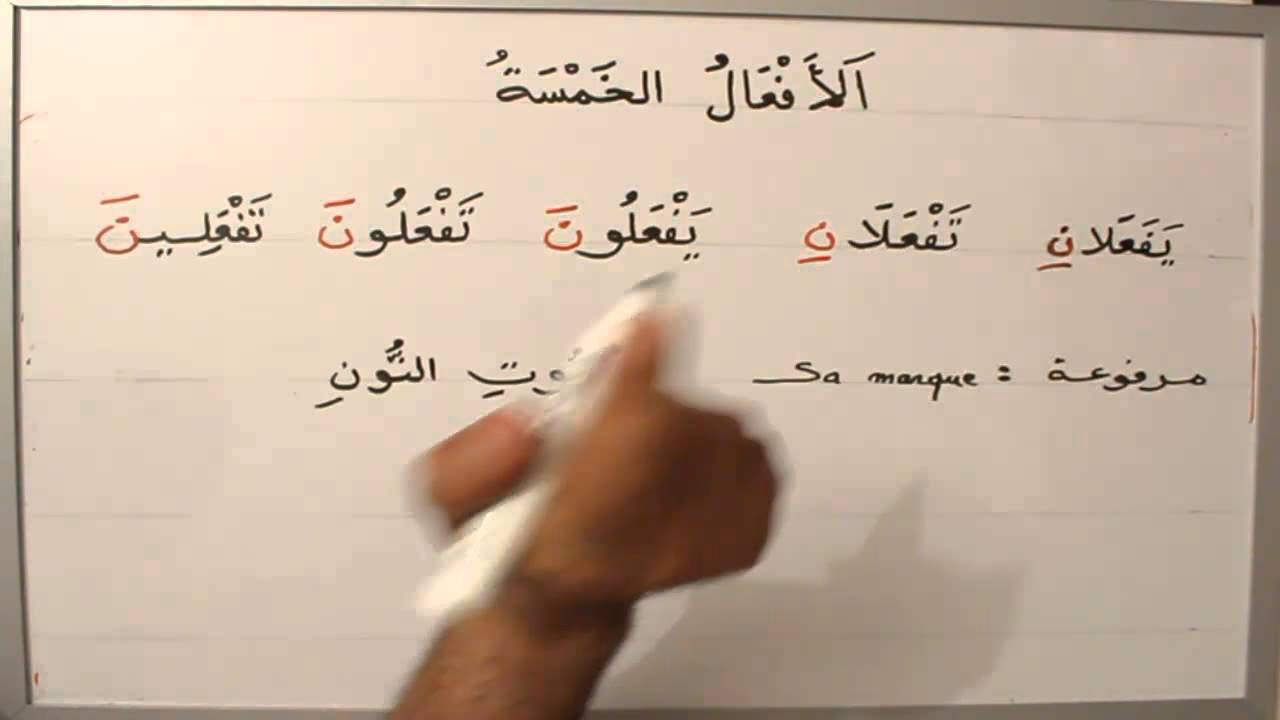 اَلأَفْعَالُ الخَمْسَةُ
يَفَعَلانِ تَفْعَلَانِ يَفْعَلُونَ تَفْعَلُونَ تَفْعَلِـيـنَ
مرفوعة : Sa marque النُّونِ